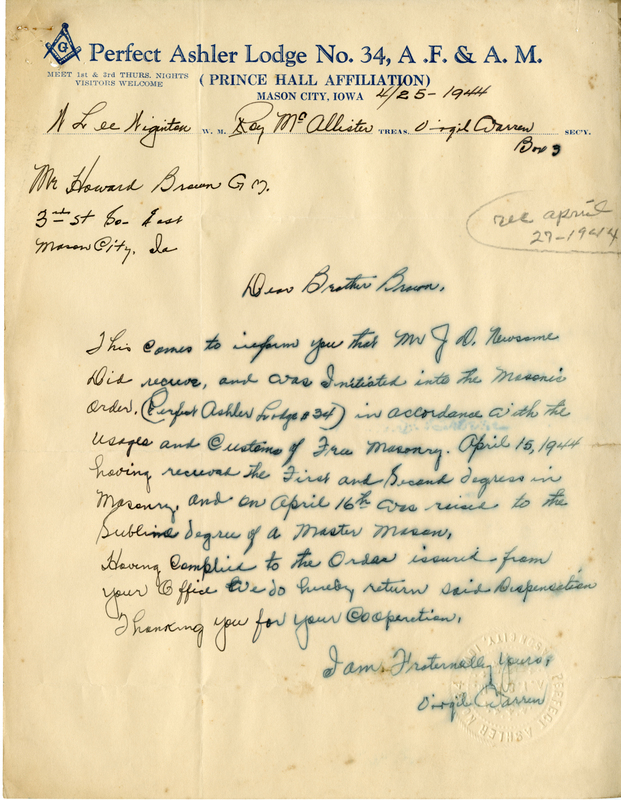 G
Perfect Ashler Lodge No. 34, A .F. & A. M.
MEET 1st & 3rd THURS. NIGHTS
VISITORS WELCOME
( PRINCE HALL AFFILIATION)
MASON CITY, IOWA 4/25-1944
N Lee Niginton W. M. Roy McAllister TREAS. Virgil Warren SEC'Y.
Box 3
Mr Howard Brown G M.
3rd St So- East
Mason City, Ia
rec april
27-1944
Dear Brother Brown.
This comes to inform you that Mr J D. Newsome
Did receive, and was Initiated into the Masonic
Order, (Perfect Ashler Lodge #34) in accordance with the
Usages and Customs of Free Masonry. April 15, 1944
having received the First and Second degress in
Masonry, and on April 16th was raised to the
Sublime degree of a Master Mason,
Having Complied to the Order issured from
your Office We do hereby return said Dispensation
Thanking you for your Cooperation,
I am. Fraternally Yours,
Virgil Warren
PERFECT ASHLER